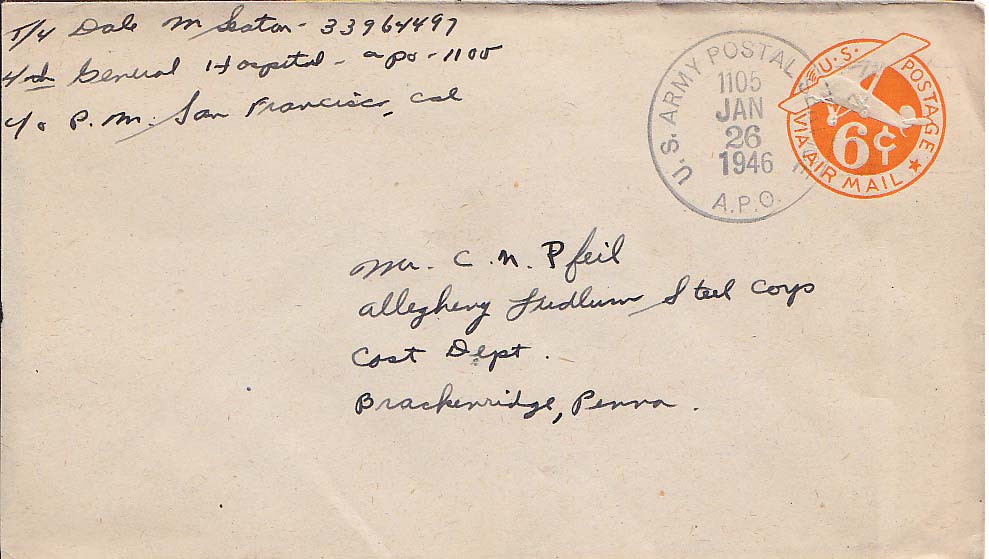 T/4 Dale M Seaton - 33964497
4th General Hospital - apo - 1105
c/o P.M. San Francisco, Cal
U.S. ARMY POSTAL
1105
JAN
26
1946
A.P.O.
U.S. POSTAGE
6¢
VIA AIR MAIL
Mr. C. N. Pfeil
Allegheny Ludlum Steel Corp
Cost Dept.
Brackenridge, Penna.